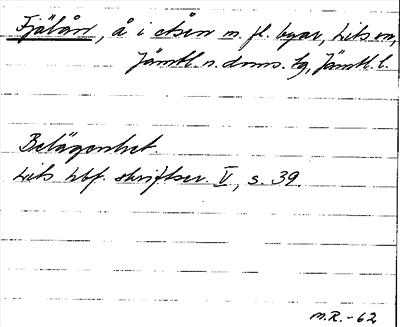 Fjälån, å i Åsen m. fl. byar, Lits sn,
Jämtl. n. doms. tg, Jämtl. l.
Belägenhet.
Lits hbf. skriftser. V, s. 39.
M.R.-62